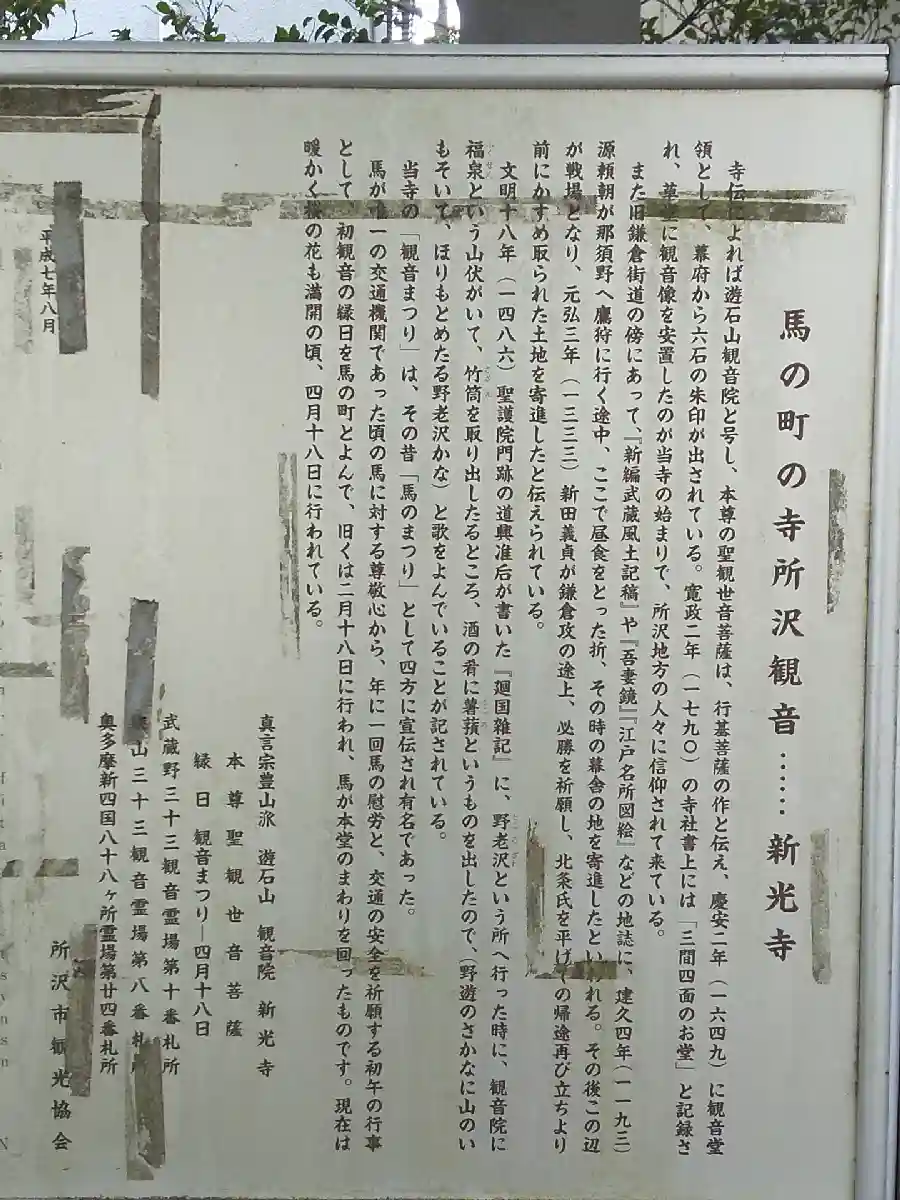 馬の町の寺所沢観音……新光寺
寺伝によれば遊石山観音院と号し、本尊の聖観世音菩薩は、行基菩薩の作と伝え、慶安二年（一六四九）に観音堂
領として、幕府から六石の朱印が出されている。寛政二年（一七九〇）の寺社書上には「三間四面のお堂」と記録さ
れ、草堂に観音像を安置したのが当寺の始まりで、所沢地方の人々に信仰されて来ている。
また旧鎌倉街道の傍にあって、『新編武蔵風土記稿』や『吾妻鏡』『江戸名所図絵』などの地誌に、建久四年（一一九三）
源頼朝が那須野へ鷹狩に行く途中、ここで昼食をとった折、その時の幕舎の地を寄進したといわれる。その後この辺
が戦場となり、元弘三年（一三三三）新田義貞が鎌倉攻の途上、必勝を祈願し、北条氏を平げての帰途再び立ちより
前にかすめ取られた土地を寄進したと伝えられている。
文明十八年（一四八六）聖護院門跡の道興准后が書いた『廻国雑記』に、野老沢という所へ行った時に、観音院に
福泉という山伏がいて、竹筒を取り出したるところ、酒の肴に薯蕷というものを出したので、（野遊のさかなに山のい
もそいて、ほりもとめたる野老沢かな）と歌をよんでいることが記されている。
当寺の「観音まつり」は、その昔「馬のまつり」として四方に宣伝され有名であった。
馬が唯一の交通機関であった頃の馬に対する尊敬心から、年に一回馬の慰労と、交通の安全を祈願する初午の行事
として、初観音の縁日を馬の町とよんで、旧くは二月十八日に行われ、馬が本堂のまわりを回ったものです。現在は
暖かく桜の花も満開の頃、四月十八日に行われている。
真言宗豊山派　遊石山　観音院　新光寺
本尊　聖観世音菩薩
縁日　観音まつり―四月十八日
武蔵野三十三観音霊場第十番札所
山三十三観音霊場第八番札所
奥多摩新四国八十八ヶ所霊場第廿四番札所
平成七年八月
所沢市観光協会